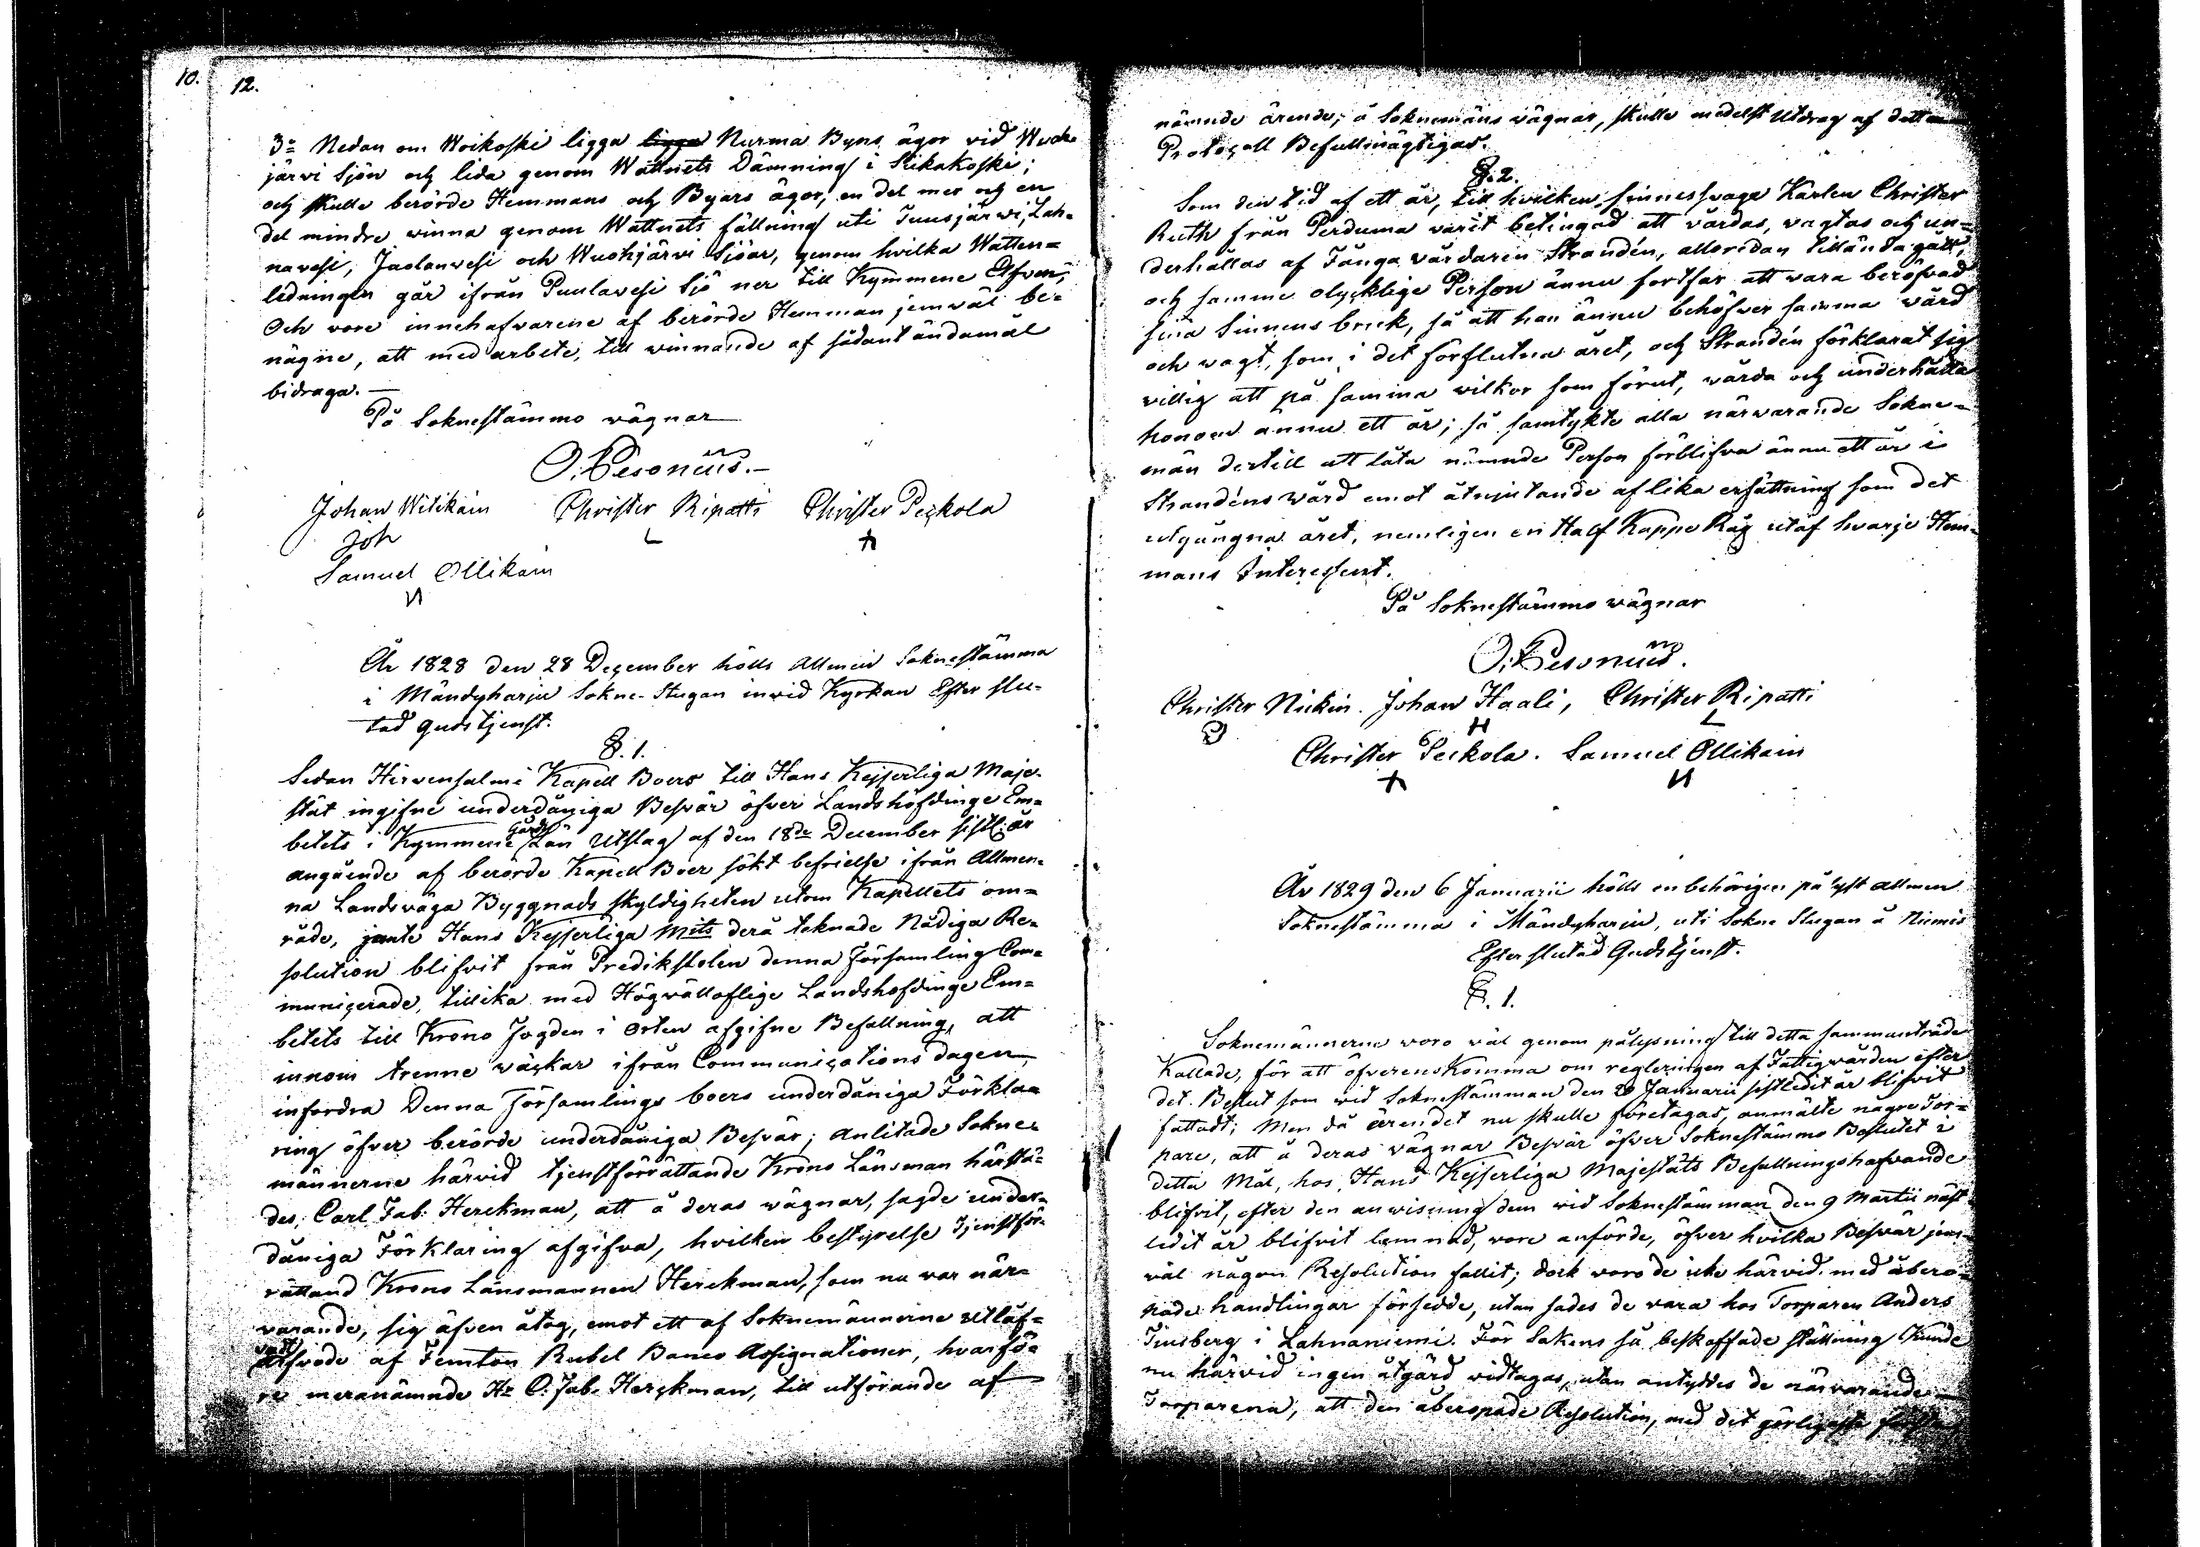 10. 12.
3:o Nedan om Woikoski ligga ligga Nurma Byns ägor vid Wuoh-
järvi Sjön och lida genom Wattnets Dämning i Siikakoski;
och skulle berörde Hemmans och Byars ägor, en del mer och en
del mindre winna genom Wattnets fällning uti Juusjärwi, Lah-
navesi, Jaolanvesi och Wuohjärvi Sjöar, genom hvilka Watten-
ledningen går ifrån Puulavesi Sjö ner till Kymmene Elfven;
Och vore innehafvarene af berörde Hemman jemväl be-
nägne, att med arbete, till winnande af sådant ändamål
bidraga. —
På Soknestämmo wägnar
O. Pesonius. —
Johan Witikain Christer Ripatti Christer Peckola
Joh
Samuel Ollikain
År 1828 den 28 December hölls allmän Soknestämma
i Mändyharju Sokne-Stugan inwid Kyrkan Efter slu-
tad gudstjenst.
§. 1.
Sedan Hirvensalmi Kapell Boers till Hans Kejserliga Maje-
stät ingifne underdåniga Besvär öfver Landshöfdinge Em-
betets i Kymmene Gårds Län Utslag af den 18de December sistl. år
angående af berörde Kapell Boer sökt befrielse ifrån Allmen-
na Landsväga Byggnads skyldigheten utom Kapellets om-
råde, jemte Hans Kejserliga Mjts derå teknade Nådiga Re-
solution blifvit från Predikstolen denna Församling Com-
municerade, tillika med Högvällofliga Landshöfdinge Em-
betets till Krono Fogden i Orten afgifne Befallning, att
innom trenne wäckar ifrån Communications dagen
infordra Denna Församlings boers underdåniga Förkla-
ring öfver berörde underdåniga Besvär; anlitade Sokne-
männerne härvid tjenstförrättande Krono Länsman härstä-
des, Carl Fab. Herckman, att å deras wägnar, sagde under-
dåniga Förklaring afgifva, hvilken bestyrelse tjenstför-
rättand Krono Länsmannen Herckman, som nu var när-
varande, sig äfven åtog, emot ett af Soknemännerne utlåf-
vadt arfvode af Femton Rubel Banco Assignationer, hvarfö-
re meranämnde Hr C. Fab. Herckman, till utförande af
nämnde ärende, å Soknemäns wägnar, skulle medelst Utdrag af detta
Protocoll Befullmägtigas.
§. 2.
Som den tid af ett år, till hvilken sinnessvage Karlen Christer
Ruth från Perduma varit betingad att vårdas, vagtas och un-
derhållas af Fångavårdaren Strandén, allaredan tilländagått,
och samme olycklige Person ännu fortfar att vara beröfvad
sina Sinnens bruk, så att han ännu behöfver samma wård
och vagt, som i det förflutna året, och Strandén förklarat sig
villig att på samma wilkor som förut, vårda och underhålla
honom annu ett år; så samtykte alla närvarande Sokne-
män dertill att låta nämnde Person förblifva ännu ett år i
Strandéns wård emot åtnjutande af lika ersättning som det
utgångna året, nemligen en Half Kappe Råg utaf hvarje Hem-
mans Interessent.
På Soknestämmo wägnar
O. Pesonius.
Christer Nickin. Johan Haali, Christer Ripatti
Christer Peckola. Samuel Ollikain
År 1829 den 6 Januarii hölls en behörigen pålyst allmän
Soknestämma i Mändyharju, uti Sokne Stugan å Niemis
Efter slutad Gudstjenst.
§. 1.
Soknemännerne woro väl genom pålysning till detta sammanträde
Kallade, för att öfverenskomma om regleringen af Fattigvården efter
det Beslut som vid Soknestämman den 20 Januarii sistledit år blifvit
fattadt; Men då ärendet nu skulle företagas, anmälte några Tor-
pare, att å deras vägnar Besvär öfver Soknestämmo Beslutet i
detta Mål, hos Hans Kejserliga Majestäts Befallningshafvande
blifvit, efter den anwisning dem vid Soknestämman den 9 Martii näst-
ledit år blifvit lemnad, vore anförde, öfver hvilka Besvär jem-
väl någon Resolution fallit; dock woro de icke härvid med åbero-
pade handlingar försedde, utan sades de vara hos Torparen Anders
Tinsberg i Lahnaniemi. För Sakens så beskaffade ställning Kunde
nu härvid ingen åtgärd vidtagas, utan antyddes de närvarande
Torparena, att den åberopade Resolution, med det görligaste